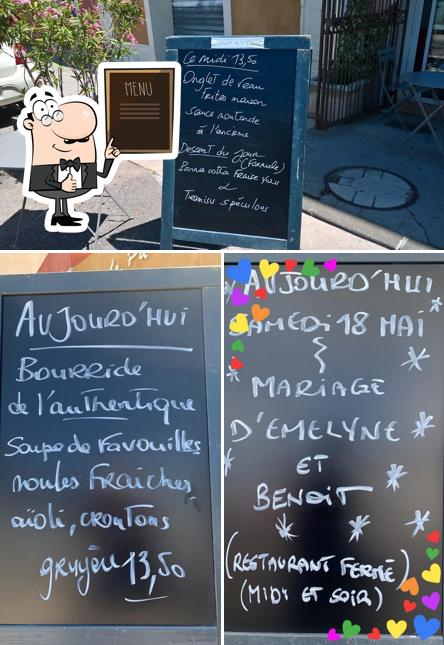 MENU
Ce midi 13,50
Onglet de veau
Frites maison
Sauce moutarde
à l'ancienne
Dessert du jour
(Formule)
Panna cotta Fraise
ou
Tiramisu spéculoos
AUJOURD'HUI
BOURRIDE
de l'authentique
Soupe de Favouilles
moules Fraiches
aïoli, croutons
gruyère 13,50
AUJOURD'HUI
SAMEDI 18 MAI
MARIAGE
D'EMELYNE
ET
BENOIT
(RESTAURANT FERMÉ)
(MIDI ET SOIR)